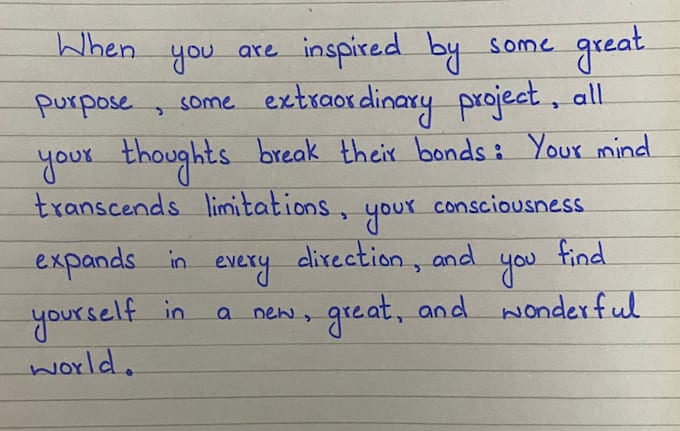 When you are inspired by some great
purpose, some extraordinary project, all
your thoughts break their bonds: Your mind
transcends limitations, your consciousness
expands in every direction, and you find
yourself in a new, great, and wonderful
world.